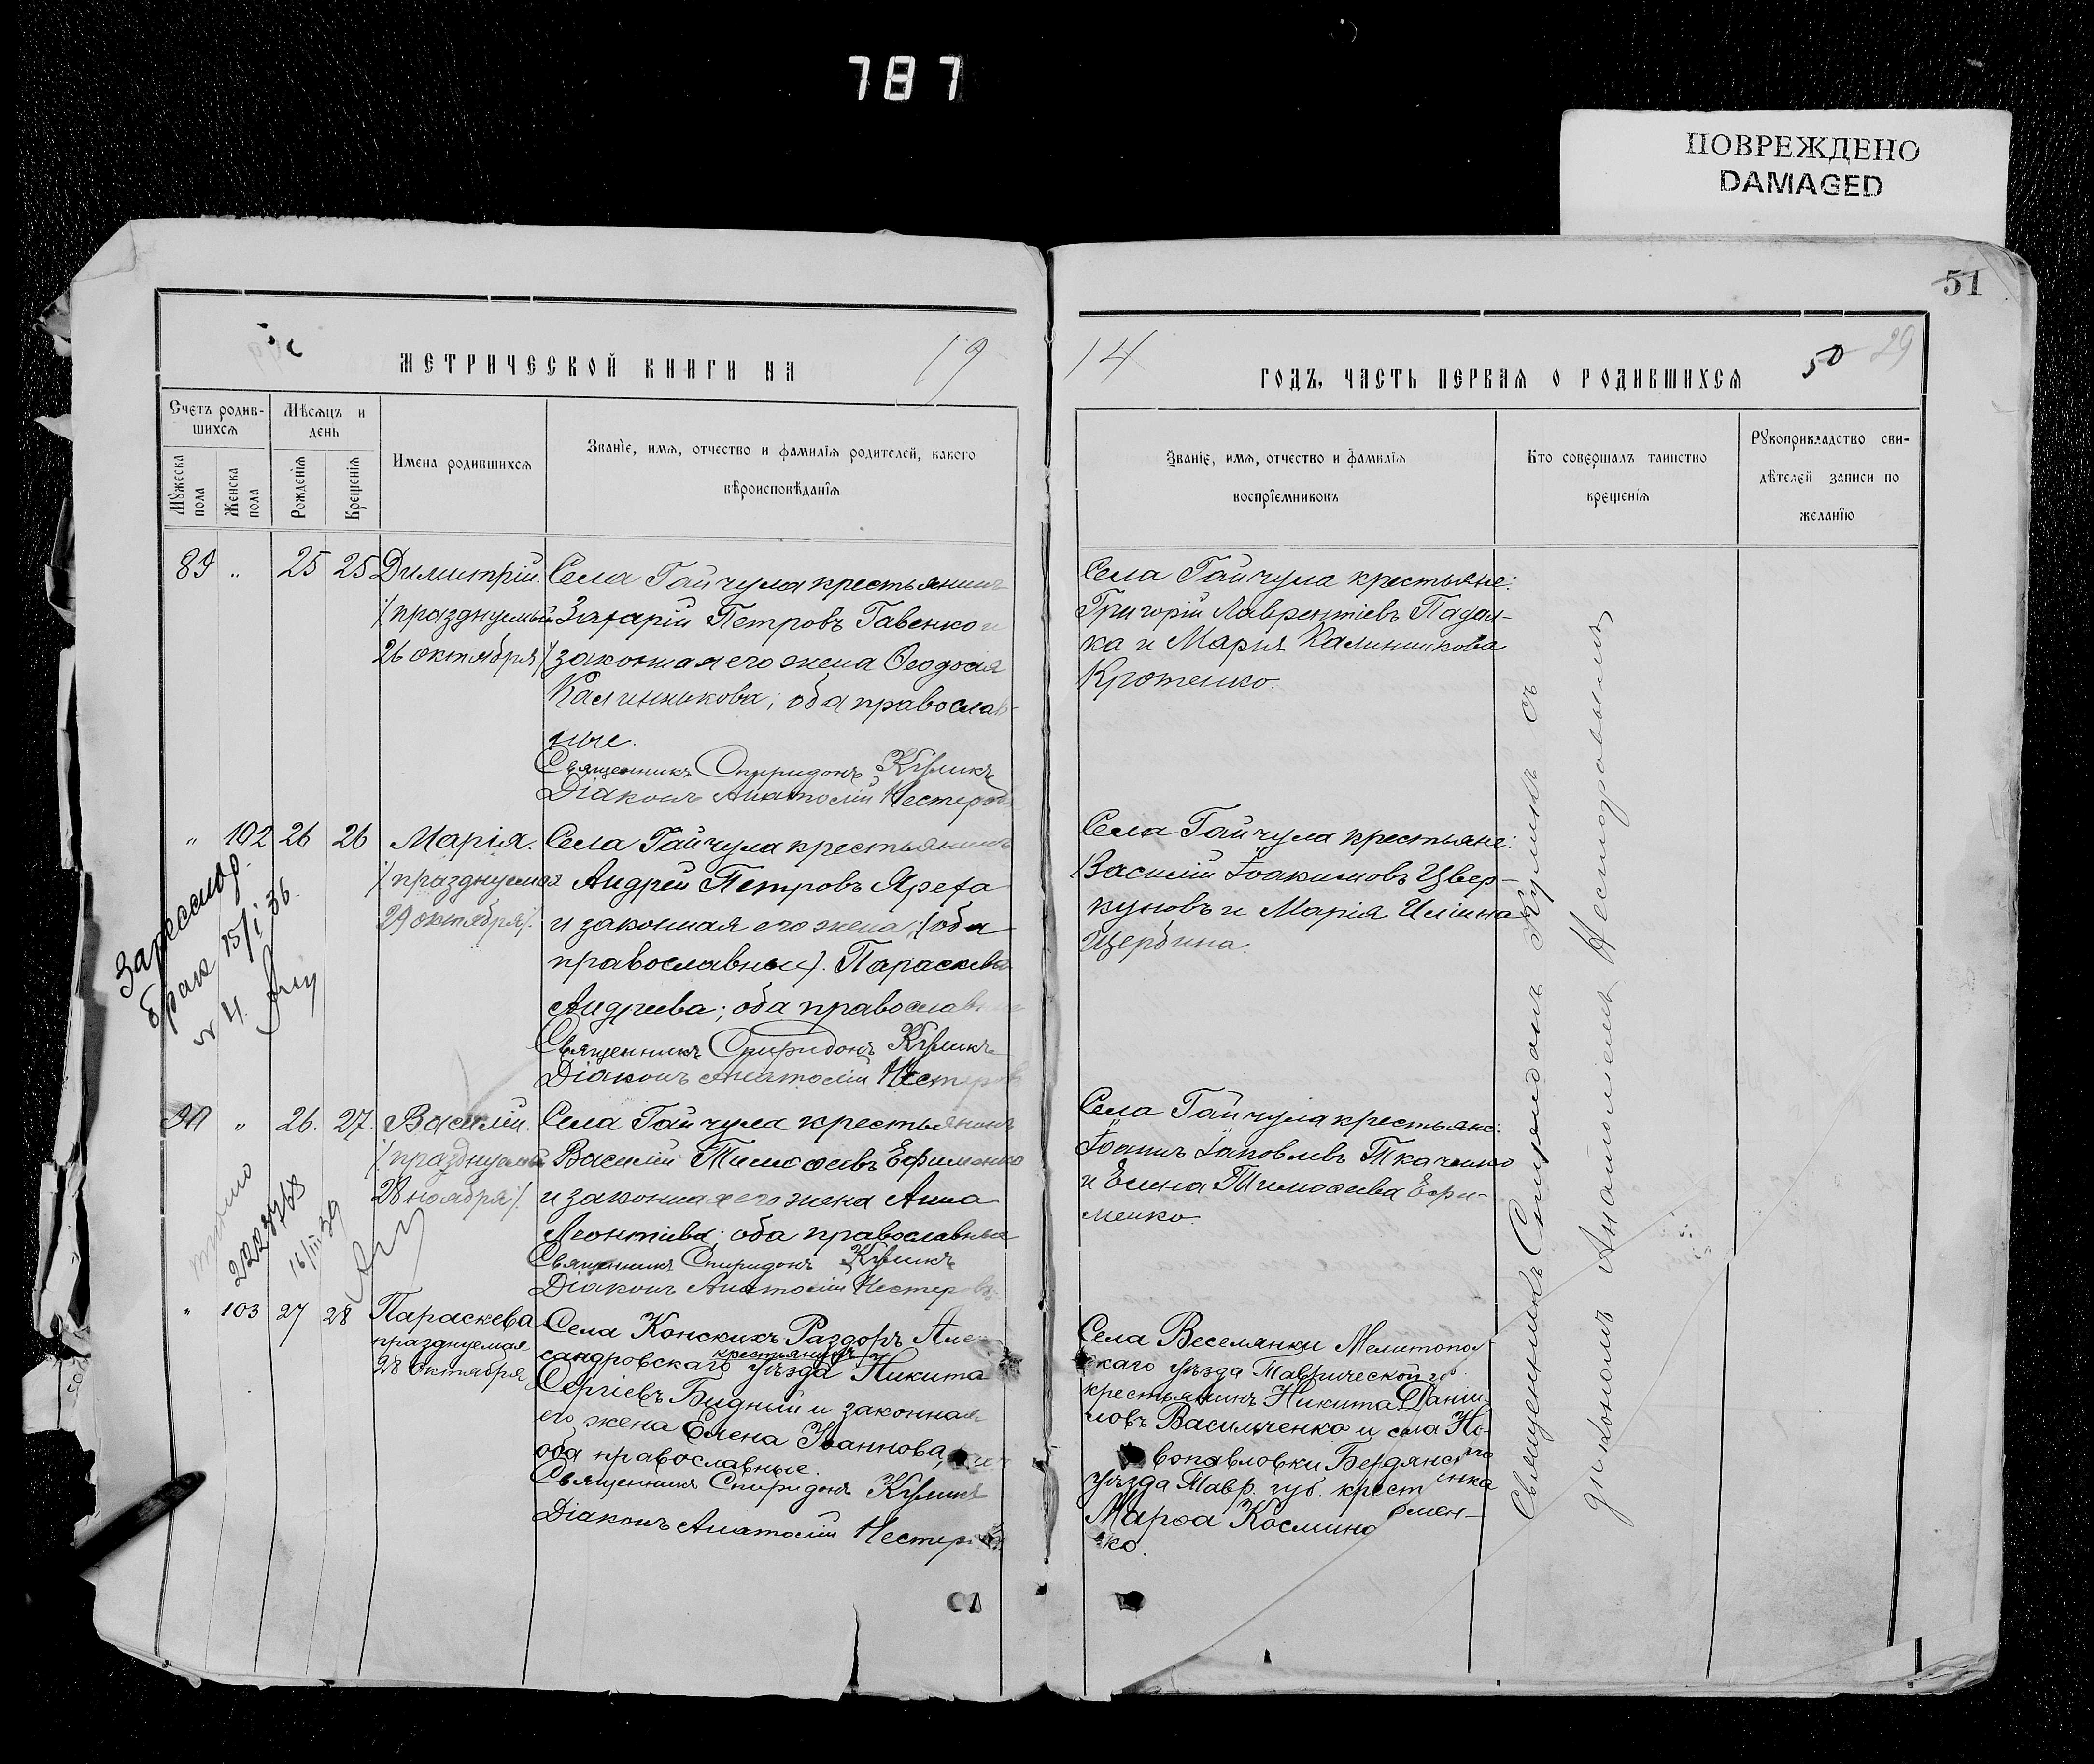 787
ПОВРЕЖДЕНО
DAMAGED
51
МЕТРИЧЕСКОЙ КНИГИ НА 19
14 ГОДЪ, ЧАСТЬ ПЕРВАЯ О РОДИВШИХСЯ
50 29
Счетъ родив-
шихся
Мѣсяцъ и
день
Мужеска пола
Женска пола
Рожденія
Крещенія
Имена родившихся
Званіе, имя, отчество и фамилія родителей, какого
вѣроисповѣданія
Званіе, имя, отчество и фамилія
воспріемниковъ
Кто совершалъ таинство
крещенія
Рукоприкладство сви-
дѣтелей записи по
желанію
89 " 25 25 Димитрій.
/празднуемый
26 октября/
Села Гайчула крестьянинъ
Захарій Петровъ Гавенко и
законная его жена Ѳеодосія
Калинникова; оба православ-
ные.
Священникъ Спиридонъ Куликъ
Діаконъ Анатолій Нестеров
Села Гайчула крестьяне:
Григорій Лаврентіевъ Падал-
ка и Марія Калинникова
Кротенко.
" 102 26 26 Марія.
/празднуемая
29 октября/.
Села Гайчула крестьянинъ
Андрей Петровъ Яреха
и законная его жена; /оба
православные/. Параскева
Андреева; оба православные
Священникъ Спиридонъ Куликъ
Діаконъ Анатолій Нестеров
Села Гайчула крестьяне:
Василій Іоакимовъ Цвер-
куновъ и Марія Иліина
Щербина.
брак 15/I 36.
№ 4.
90 " 26. 27. Василій.
/празднуемый
28 ноября/.
Села Гайчула крестьянинъ
Василій Тимоѳеевъ Ефименко
и законная его жена Анна
Леонтіева; оба православные
Священникъ Спиридонъ Куликъ
Діаконъ Анатолій Нестеров
Села Гайчула крестьяне:
Іоаннъ Іаковлевъ Ткаченко
и Елена Тимоѳеева Ефи-
менко.
16/III 39
" 103 27 28 Параскева
празднуемая
28 Октября
Села Конскихъ Раздоръ Алек-
сандровскаго уѣзда крестьянинъ Никита
Сергіевъ Бидный и законная
его жена Елена Іоаннова,
оба православные.
Священникъ Спиридонъ Куликъ
Діаконъ Анатолій Нестеров
Села Веселянки Мелитополь-
скаго уѣзда Таврической г.
крестьянинъ Никита Даніи-
ловъ Василченко и села Но-
вопавловки Бердянс
уѣзда Тавр. губ. крест
Марѳа Космино мен-
ко.
Священникъ Спиридонъ Куликъ съ
діакономъ Анатоліемъ Нестеровымъ